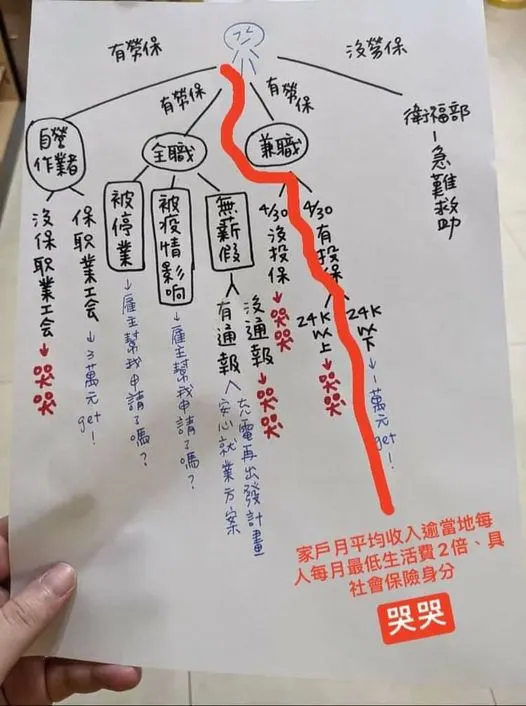 有勞保
沒勞保
有勞保
有勞保
自營
作業者
全職
兼職
衛福部
-急難救助
沒保职業工会
→哭哭
保职業工会
→3萬元get!
被停業
→雇主幫我申請了嗎?
被疫情影响
→雇主幫我申請了嗎?
無薪假
有通報
安心就業方案
充電再出發計畫
沒通報
→哭哭
4/30沒投保
→哭哭
4/30有投保
24K以上
→哭哭
24K以下
→1萬元get!
家戶月平均收入逾當地每
人每月最低生活費2倍、具
社會保險身分
哭哭